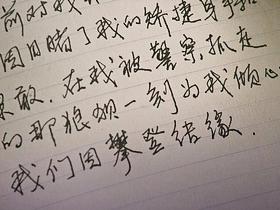 前对我
因目睹了我的矫捷身手和
果敢.在我被警察抓走
的那狼狈一刻为我倾心
我们因攀登结缘.